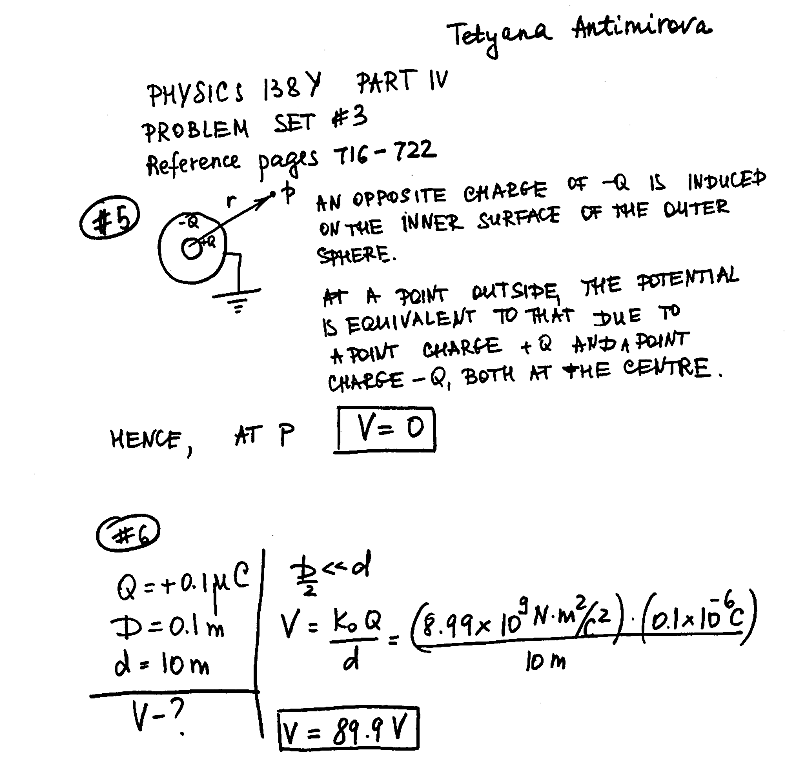 Tetyana Antimirova
PHYSICS 138Y PART IV
PROBLEM SET #3
Reference pages 716-722
#5
r P
-Q
+Q
AN OPPOSITE CHARGE OF -Q IS INDUCED
ON THE INNER SURFACE OF THE OUTER
SPHERE.
AT A POINT OUTSIDE, THE POTENTIAL
IS EQUIVALENT TO THAT DUE TO
A POINT CHARGE +Q AND A POINT
CHARGE -Q, BOTH AT THE CENTRE.
HENCE, AT P V = 0
#6
Q = +0.1 μC
D = 0.1 m
d = 10 m
V - ?
D/2 << d
V = K₀Q/d = (8.99 × 10⁹ N·m²/C²)·(0.1 × 10⁻⁶ C)/10 m
V = 89.9 V